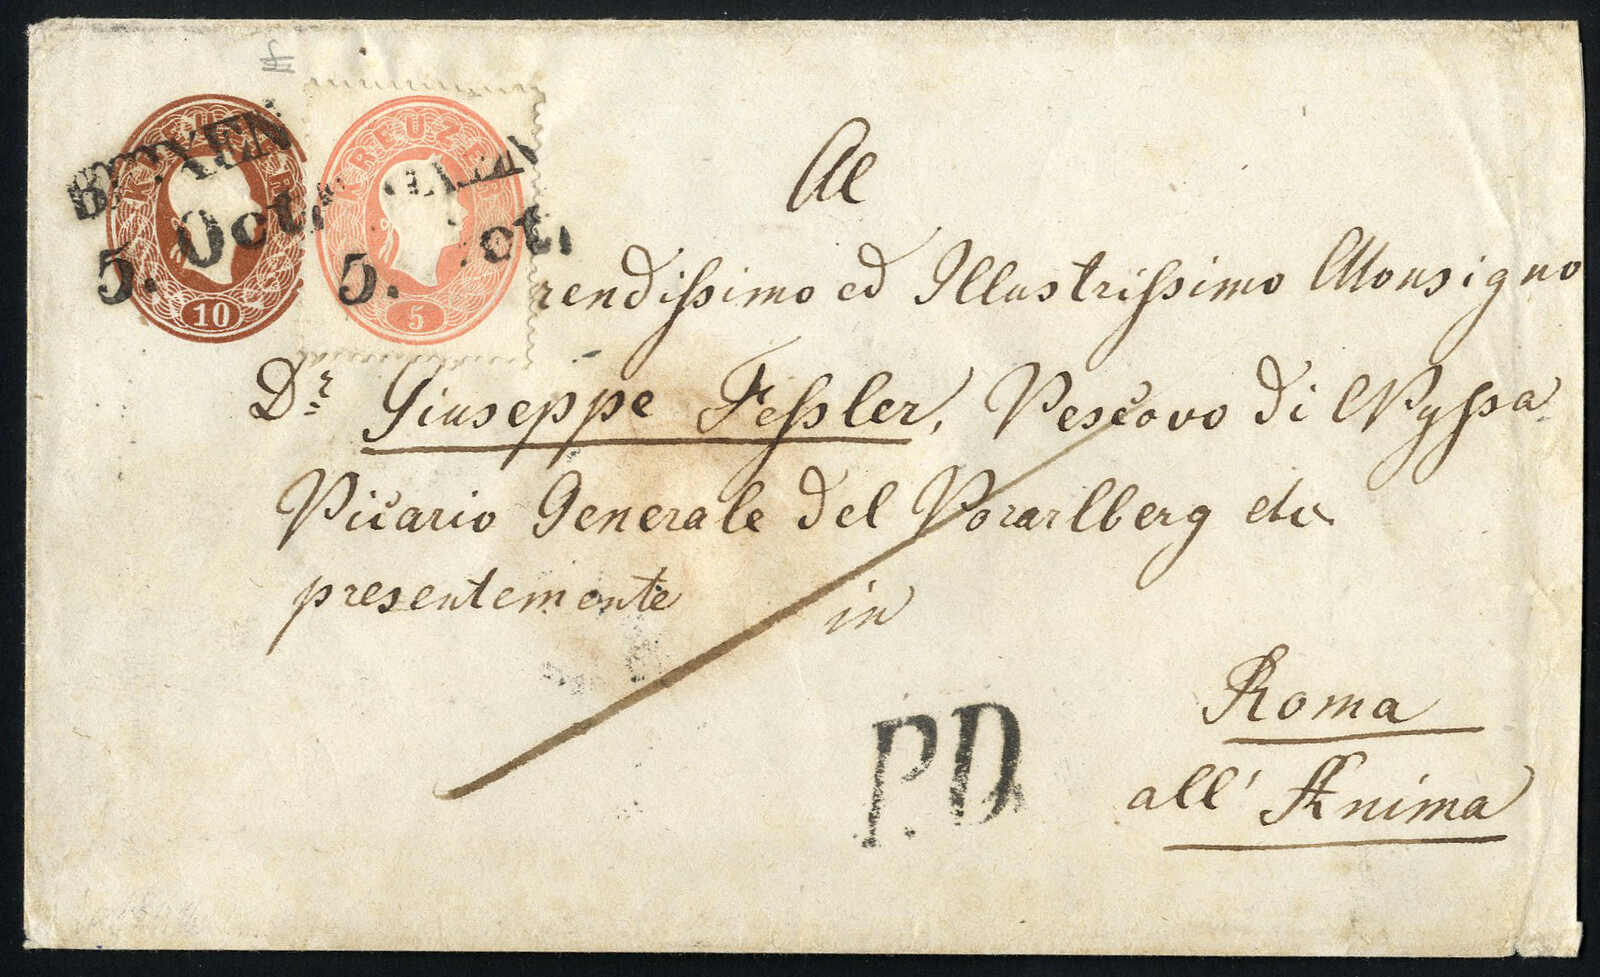 BRIXEN
5. Oct.
KREUZER
10
5. ct.
KREUZE
5
Al
rendissimo ed Illustrissimo Monsigno
Dr. Giuseppe Fessler, Vescovo di Nyssa
Vicario Generale del Vorarlberg etc
presentemente in
Roma
all' Anima
P.D.